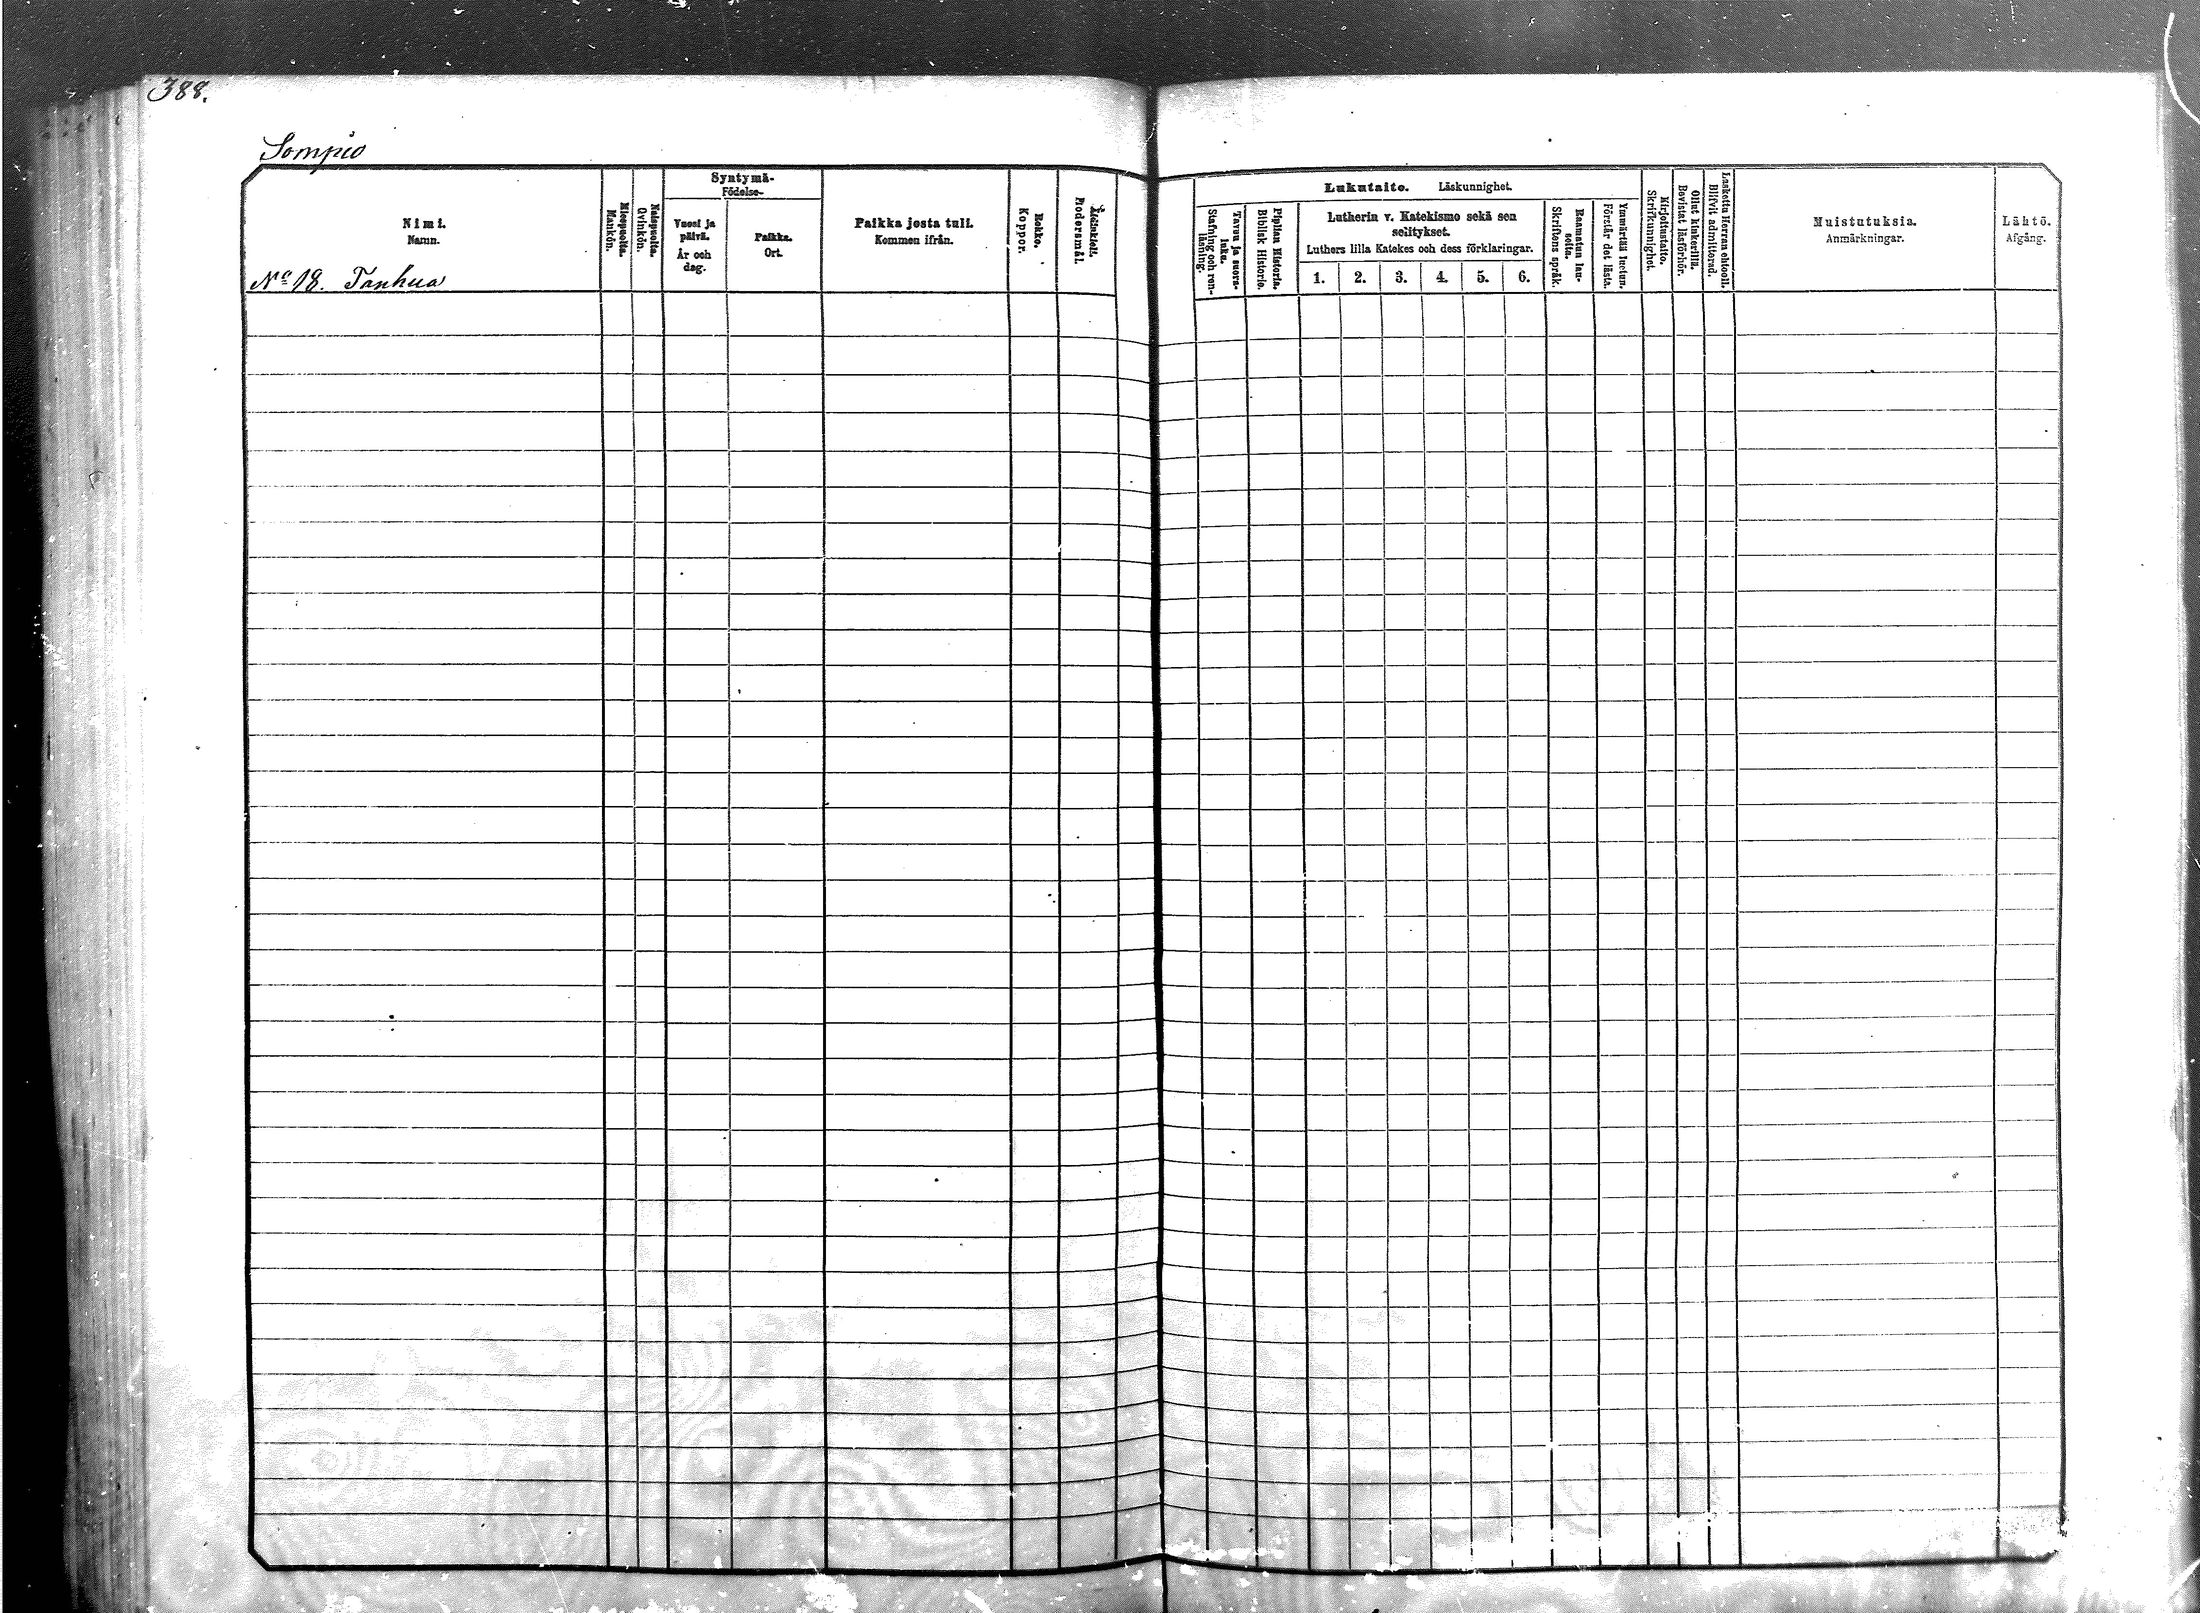 388.
Sompio
Nimi.
Namn.
No 18. Tanhua
Miespuolta.
Mankön.
Naispuolta.
Qvinkön.
Syntymä-
Födelse-
Vuosi ja
päivä.
År och
dag.
Paikka.
Ort.
Paikka josta tuli.
Kommen ifrån.
Rokko.
Koppor.
Äidinkieli.
Modersmål.
Lukutaito. Läskunnighet.
Tavuu ja suora-
luku.
Stafning och ren-
läsning.
Piplian Historia.
Biblisk Historie.
Lutherin v. Katekismo sekä sen
selitykset.
Luthers lilla Katekes och dess förklaringar.
1. 2. 3. 4. 5. 6.
Raamatun lau-
seita.
Skriftens språk.
Ymmärtää luetun.
Förstår det lästa.
Kirjoitustaito.
Skrifkunnighet.
Ollut kinkerillä.
Bevistat läsförhör.
Laskettu Herran ehtooll.
Blifvit admitterad.
Muistutuksia.
Anmärkningar.
Lähtö.
Afgång.